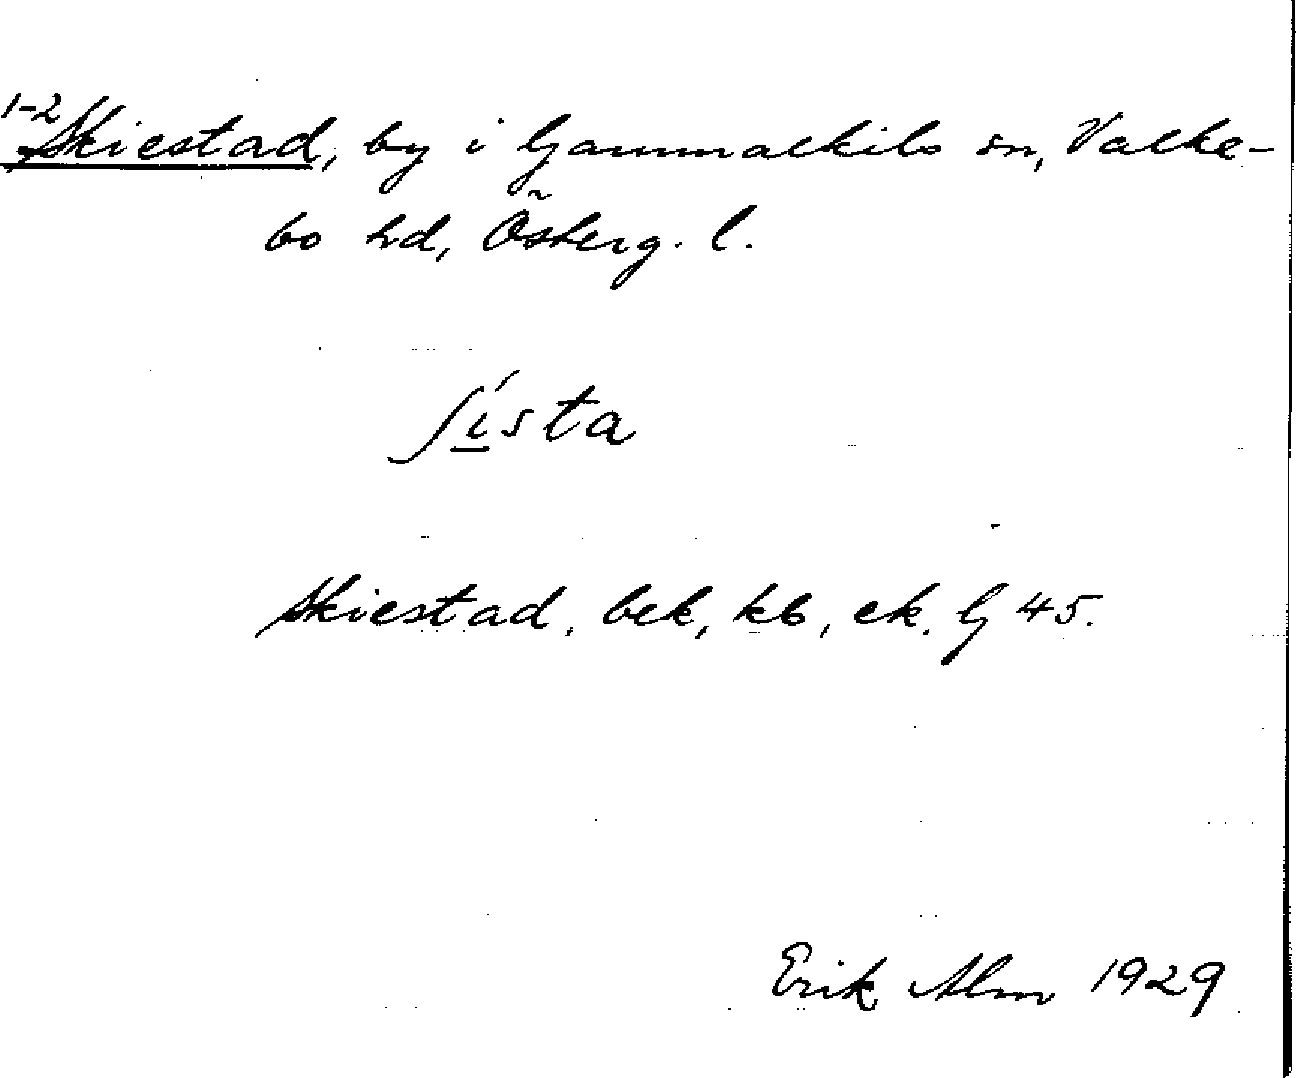 1-2 Skiestad, by i Gammalkils sn, Valke-
bo hd, Österg. l.
ʃísta
Skiestad, bek, kb, ek. G 45.
Erik Alm 1929